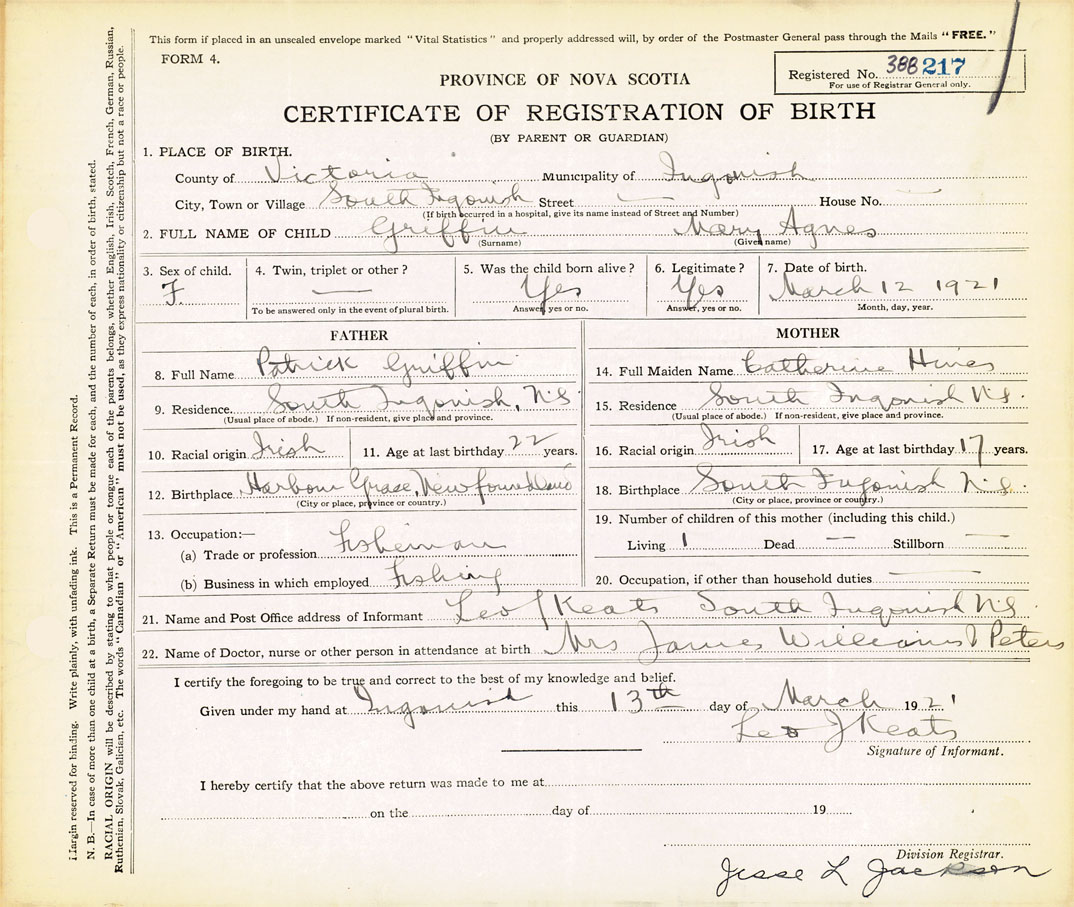 This form if placed in an unsealed envelope marked "Vital Statistics" and properly addressed will, by order of the Postmaster General pass through the Mails "FREE."
FORM 4.
Registered No. 388217
For use of Registrar General only.
PROVINCE OF NOVA SCOTIA
CERTIFICATE OF REGISTRATION OF BIRTH
(BY PARENT OR GUARDIAN)
1. PLACE OF BIRTH.
County of Victoria Municipality of Ingonish
City, Town or Village South Ingonish Street — House No. —
(If birth occurred in a hospital, give its name instead of Street and Number)
2. FULL NAME OF CHILD Griffin Mary Agnes
(Surname) (Given name)
3. Sex of child. 4. Twin, triplet or other? 5. Was the child born alive? 6. Legitimate? 7. Date of birth.
F. — Yes Yes March 12 1921
To be answered only in the event of plural birth. Answer, yes or no. Answer, yes or no. Month, day, year.
FATHER
8. Full Name Patrick Griffin
9. Residence South Ingonish, N S
(Usual place of abode.) If non-resident, give place and province.
10. Racial origin Irish 11. Age at last birthday 22 years.
12. Birthplace Harbour Grace, Newfoundland
(City or place, province or country.)
13. Occupation:—
(a) Trade or profession Fisherman
(b) Business in which employed Fishing
MOTHER
14. Full Maiden Name Catherine Hines
15. Residence South Ingonish N S.
(Usual place of abode.) If non-resident, give place and province.
16. Racial origin Irish 17. Age at last birthday 17 years.
18. Birthplace South Ingonish N. S.
(City or place, province or country.)
19. Number of children of this mother (including this child.)
Living 1 Dead — Stillborn —
20. Occupation, if other than household duties —
21. Name and Post Office address of Informant Leo J Keats South Ingonish N S.
22. Name of Doctor, nurse or other person in attendance at birth Mrs James Williams Peters
I certify the foregoing to be true and correct to the best of my knowledge and belief.
Given under my hand at Ingonish this 13th day of March 1921
Leo J Keats
Signature of Informant.
I hereby certify that the above return was made to me at
on the day of 19
Division Registrar.
Jesse L Jackson
Margin reserved for binding. Write plainly, with unfading ink. This is a Permanent Record.
N. B.—In case of more than one child at a birth, a Separate Return must be made for each, and the number of each, in order of birth, stated.
RACIAL ORIGIN will be described by stating to what people or tongue each of the parents belongs, whether English, Irish, Scotch, French, German, Russian,
Ruthenian, Slovak, Galician, etc. The words "Canadian" or "American" must not be used, as they express nationality or citizenship but not a race or people.